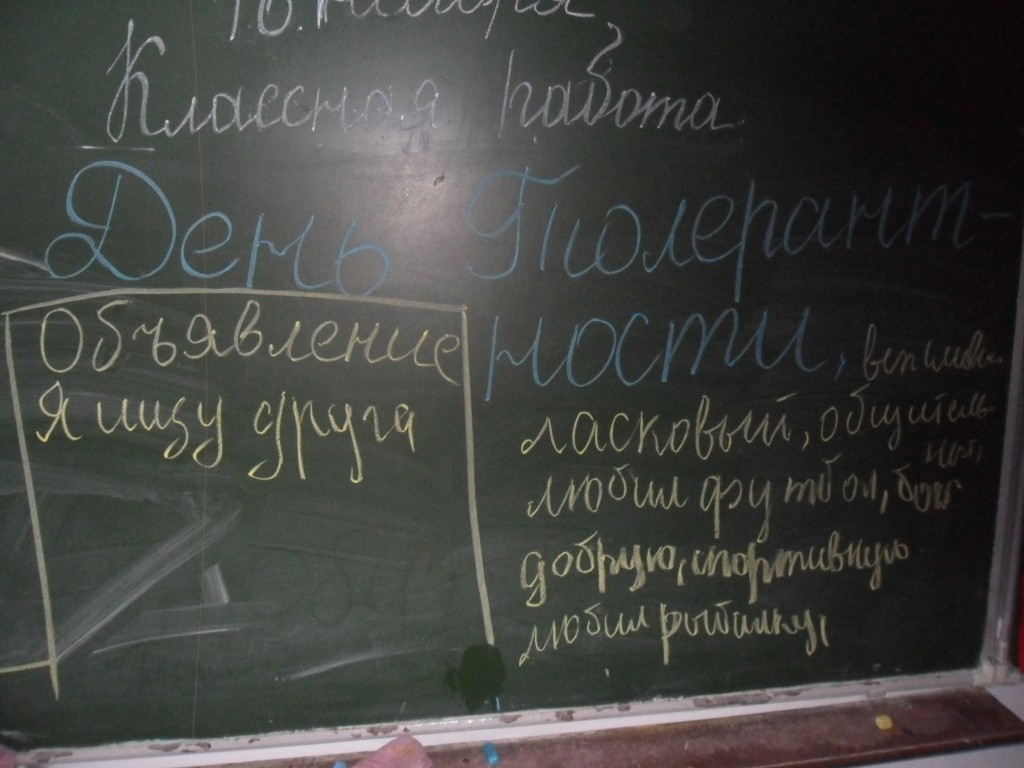 16 ноября
Классная работа
День Толерант-
ности,
Объявление
Я ищу друга
ласковый, общитель-
ный,
любил футбол, бокс
добрую, спортивную
любил рыбалку,